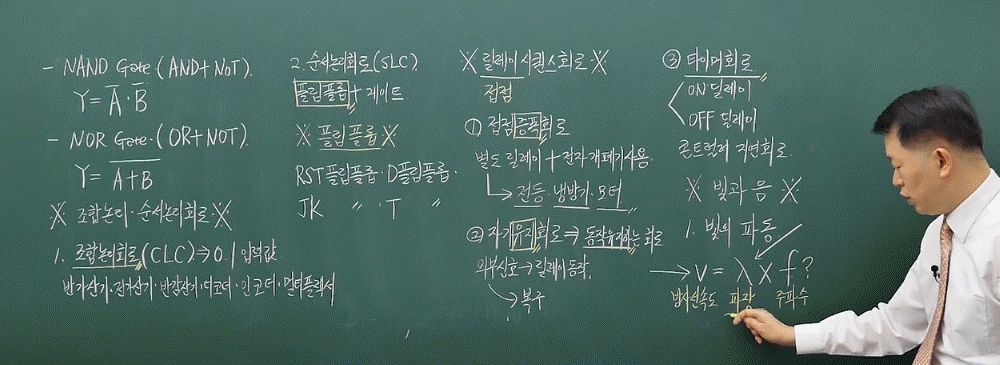 - NAND Gate·(AND+NOT).
Y = A̅·B̅
- NOR Gate·(OR+NOT)
Y = A+B
※ 조합논리·순서논리회로 ※
1. 조합논리회로(CLC)⇒0.1 입력값
반가산기·전가산기·반감산기·디코더·인코더·멀티플렉서
2. 순서논리회로(SLC).
플립플롭 + 게이트
※ 플립플롭 ※
RST플립플롭·D플립플롭·
JK 〃 · T 〃
※ 릴레이 시퀀스회로 ※
접점
① 접점증폭회로
별도 릴레이 + 전자개폐기사용.
→ 전등·냉방기·모터
② 자기유지회로⇒동작유지하는 회로
외부신호→릴레이동작.
→ 복구
③ 타이머회로
ON·딜레이
OFF 딜레이
콘트럴러 지연회로.
※ 빛과 음 ※
1. 빛의 파동
→ V = λ × f ?
방사선속도 파장 주파수